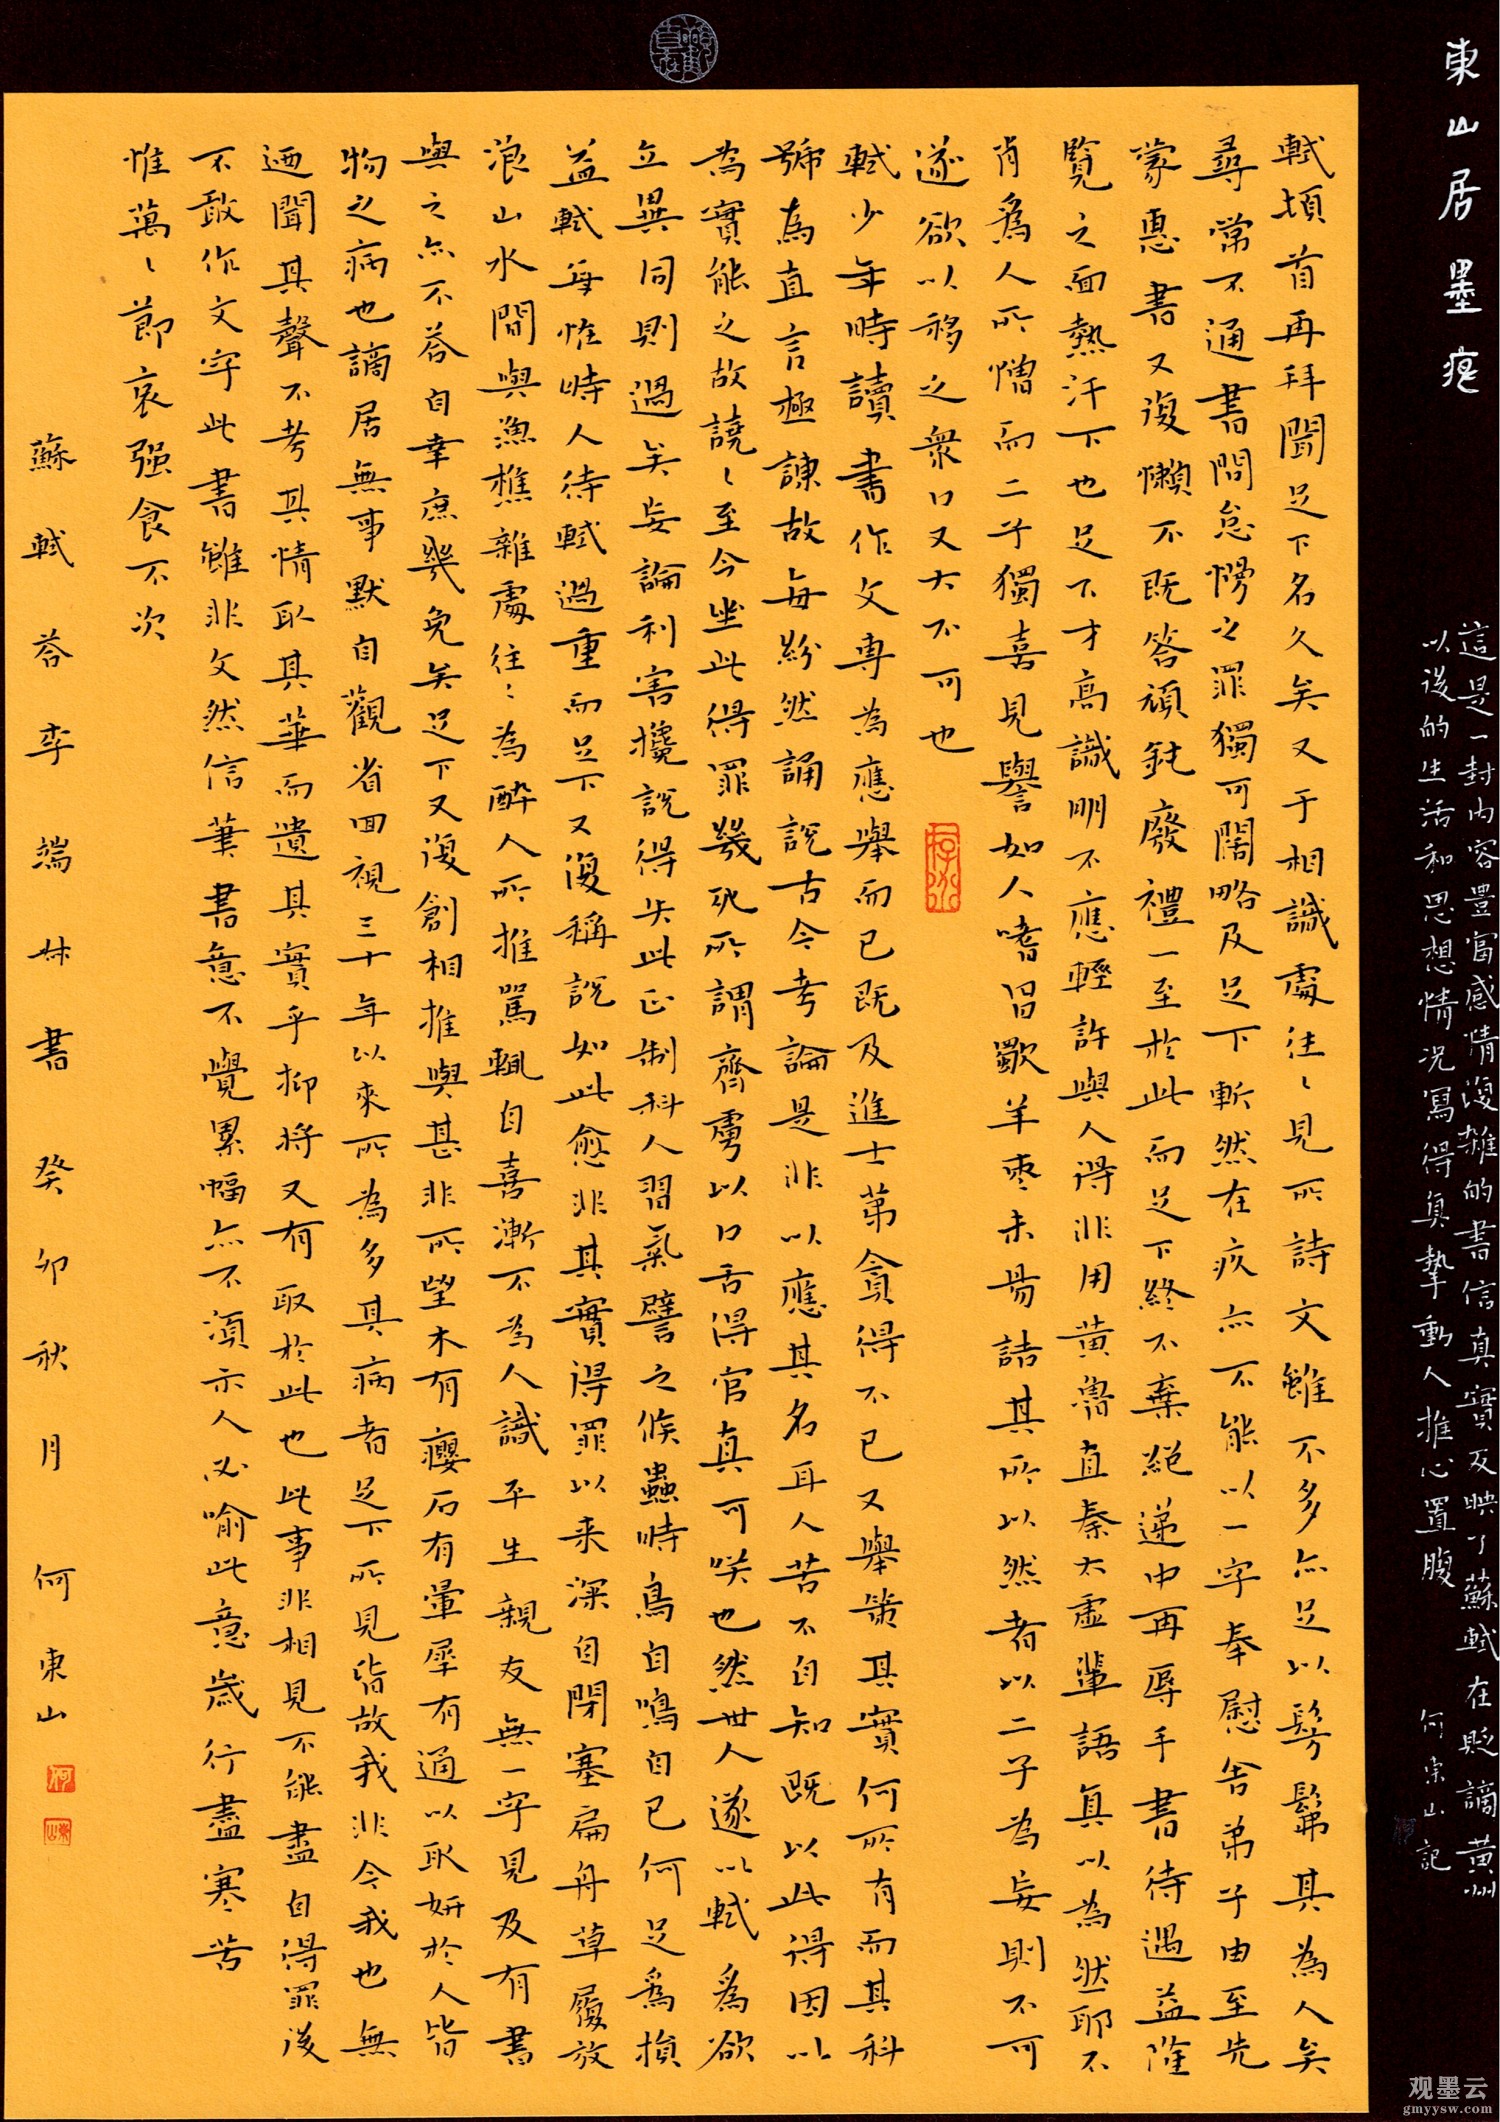 東山居墨痕
這是一封内容豊富感情復雜的書信真實反映了蘇軾在貶謫黄州
以後的生活和思想情况寫得真摯動人推心置腹
何東山記
軾頓首再拜聞足下名久矣又于相識處往〻見所詩文雖不多亦足以髣髴其為人矣
尋常不通書問怠慢之罪獨可闊略及足下斬然在疚亦不能以一字奉慰舍弟子由至先
蒙惠書又復懶不既答頑鈍廢禮一至於此而足下終不棄絕递中再辱手書待遇益隆
覽之面熱汗下也足下才高識明不應輕許與人得非用黄魯直秦太虚輩語真以為然耶不
肖爲人所憎而二子獨喜見譽如人嗜昌歜羊枣未易詰其所以然者以二子為妄則不可
遂欲以移之衆口又大不可也
軾少年時讀書作文專為應舉而已既及進士第貪得不已又舉策其實何所有而其科
號為直言極諫故每紛然誦說古今考論是非以應其名耳人苦不自知既以此得因以
為實能之故譊〻至今坐此得罪幾死所謂齊虜以口舌得官真可咲也然世人遂以軾爲欲
立異同則過矣妄論利害攙說得失此正制科人習氣譬之候蟲時鳥自鳴自已何足爲損
益軾每怪時人待軾過重而足下又復稱說如此愈非其實得罪以来深自閉塞扁舟草履放
浪山水間與漁樵雜處往〻為醉人所推駡輒自喜漸不為人識平生親友無一字見及有書
與之亦不荅自幸庶幾免矣足下又復創相推與甚非所望木有癭石有暈犀有通以取妍於人皆
物之病也謫居無事默自觀省囬視三十年以來所為多其病者足下所見皆故我非今我也無
迺聞其聲不考其情取其華而遺其實乎抑将又有取於此也此事非相見不能盡自得罪後
不敢作文字此書雖非文然信筆書意不覺累幅亦不須示人必喻此意歲行盡寒苦
惟萬〻節哀强食不次
蘇軾荅李端叔書癸卯秋月何東山
观墨云
gmyysw.com